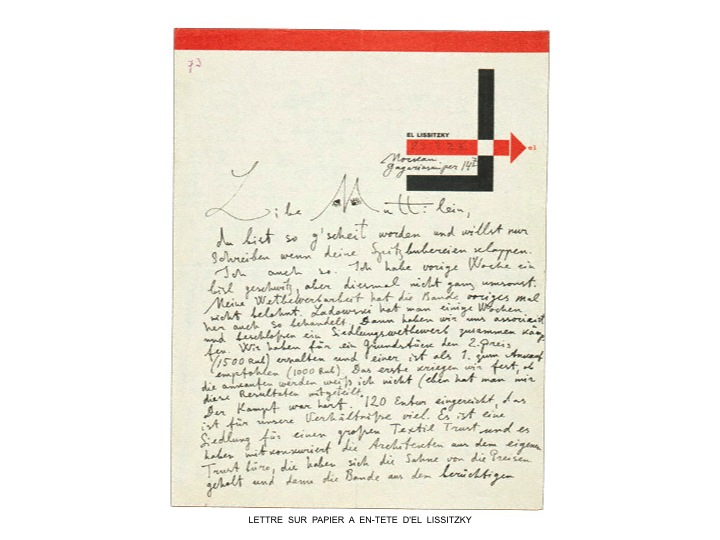 73
EL LISSITZKY
el
Moscau
14
Libe Muttilein,
du bist so g'scheit worden und willst nur
schreiben wenn deine Spitzbubereien schlappen.
Ich auch so. Ich habe vorige Woche ein
bisl geschwitz, aber diesmal nicht ganz umsonst.
Meine Wettbewerbarbeit hat die Bande voriges mal
nicht belohnt. Ladowski hat man einige Wochen
her auch so behandelt. Dann haben wir uns associeit
und beschloßen ein Siedlungswettbewerb zusammen
fen. Wir haben für ein Grundstück den 2. Preis
(1500 Rub) erhalten und einer ist als 1. zum Ankauf
empfohlen (1000 Rub). Das erste kriegen wir fest, ob
die ankaufen werden weiß ich nicht (eben hat man mir
diese Resultaten mitgeteilt.
Der Kampf war hart. 120 Entw eingereicht, das
ist für unsere Verhältniße viel. Es ist eine
Siedlung für einen großen Textil Trust und es
haben mitkonkuriert die Architekten aus dem eigenen
Trust büro, die haben sich die Sahne von die Preisen
geholt und dann die Bande aus dem berüchtigen
LETTRE SUR PAPIER A EN-TETE D'EL LISSITZKY